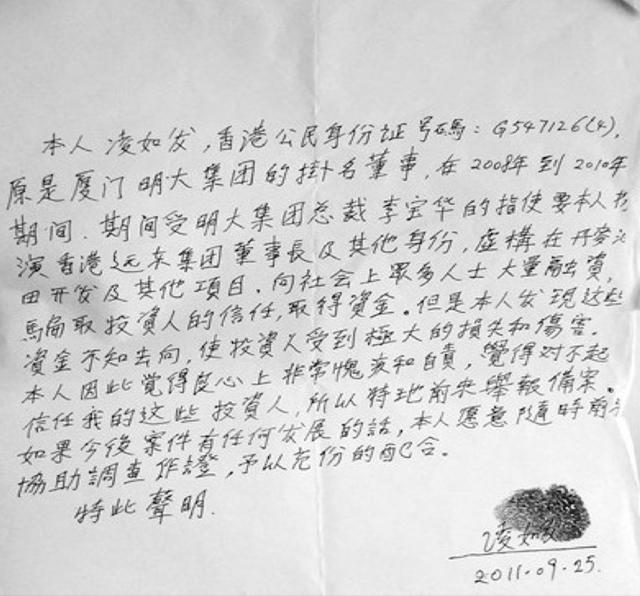 本人 凌如发，香港公民身份证号碼：G547126(4)，
原是厦门 明大集团的掛名董事，在2008年到2010年
期间．期间受明大集团总裁李宝华的指使要本人扮
演香港远东集团董事長及其他身份，虚構在丹麥
田开发及其他項目．向社会上眾多人士大量融資，
騙取投資人的信任，取得資金。但是本人发现这些
資金不知去向，使投資人受到極大的損失和傷害．
本人因此觉得良心上非常愧疚和自責，覺得对不起
信任我的这些投資人，所以特地前来舉報備案。
如果今後案件有任何发展的話，本人愿意隨時前来
協助調查作證，予以充份的配合。
特此聲明．
凌如发
2011.09.25.